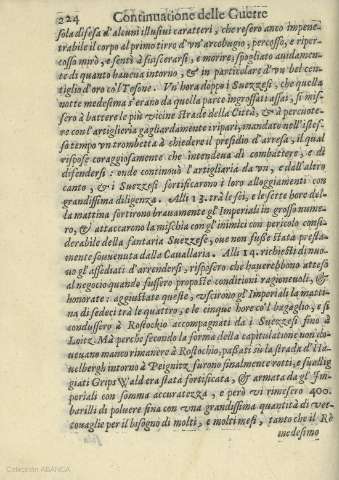 224 Continuatione delle Guerre
sola difesa d'alcuni illusiui caratteri, che resero anco impene-
trabile il corpo al primo tirro d'vn'arcobugio, percosso, e riper-
cosso mirò, e sentì à sfiscerarsi, e morire; spogliato auidamen-
te di quanto haueua intorno, & in particolare d'vn bel cen-
tiglio d'oro co'l Tosone. Vn'hora doppò i Suezzesi, che quella
notte medesima s'erano da quella parte ingrossati assai, si mise-
ro à battere le più vicine strade della Città, & à percuote-
re con l'artiglieria gagliardamente i ripari, mandato nell'istes-
so tempo vn trombetta à chiedere il presidio d'arresa, il qual
rispose coraggiosamente che intendeua di combattere, e di
difendersi: onde continouò l'artigliaria da vn, e dall'altro
canto, & i Suezzesi fortificarono i loro alloggiamenti con
grandissima diligenza. Alli 13. trà le sei, e le sette hore del-
la mattina sortirono brauamente gl'Imperiali in grosso nume-
ro, & attaccarono la mischia con gl'inimici con pericolo consi-
derabile della fantaria Suezzese, oue non fuße stata presta-
mente souuenuta dalla Cauallaria. Alli 14. richiesti di nuo-
uo gl'assediati d'arrendersi, risposero che hauerebbono atteso
al negocio quando fussero proposte conditioni ragioneuoli, &
honorate: aggiustate queste, vscirono gl'Imperiali la matti-
na di sedeci trà le quattro, e le cinque hore co'l bagaglio, e si
condussero à Rostochio accompagnati da i Suezzesi fino à
Loitz. Mà perche secondo la forma della capitulatione non do-
ueuano manco rimanere à Rostochio, paßati sù la strada d'Ha-
uelbergh intorno à Peignitz furono finalmente rotti, e sualig-
giati Grips Wald era stata fortificata, & armata da gl'Im-
periali con somma accuratezza, e però vi rimesero 400.
barilli di poluere fina con vna grandissima quantità di vet-
touaglie per il bisogno di molti, e molti mesi, tanto che il Rè
medesimo
Colección ABANCA